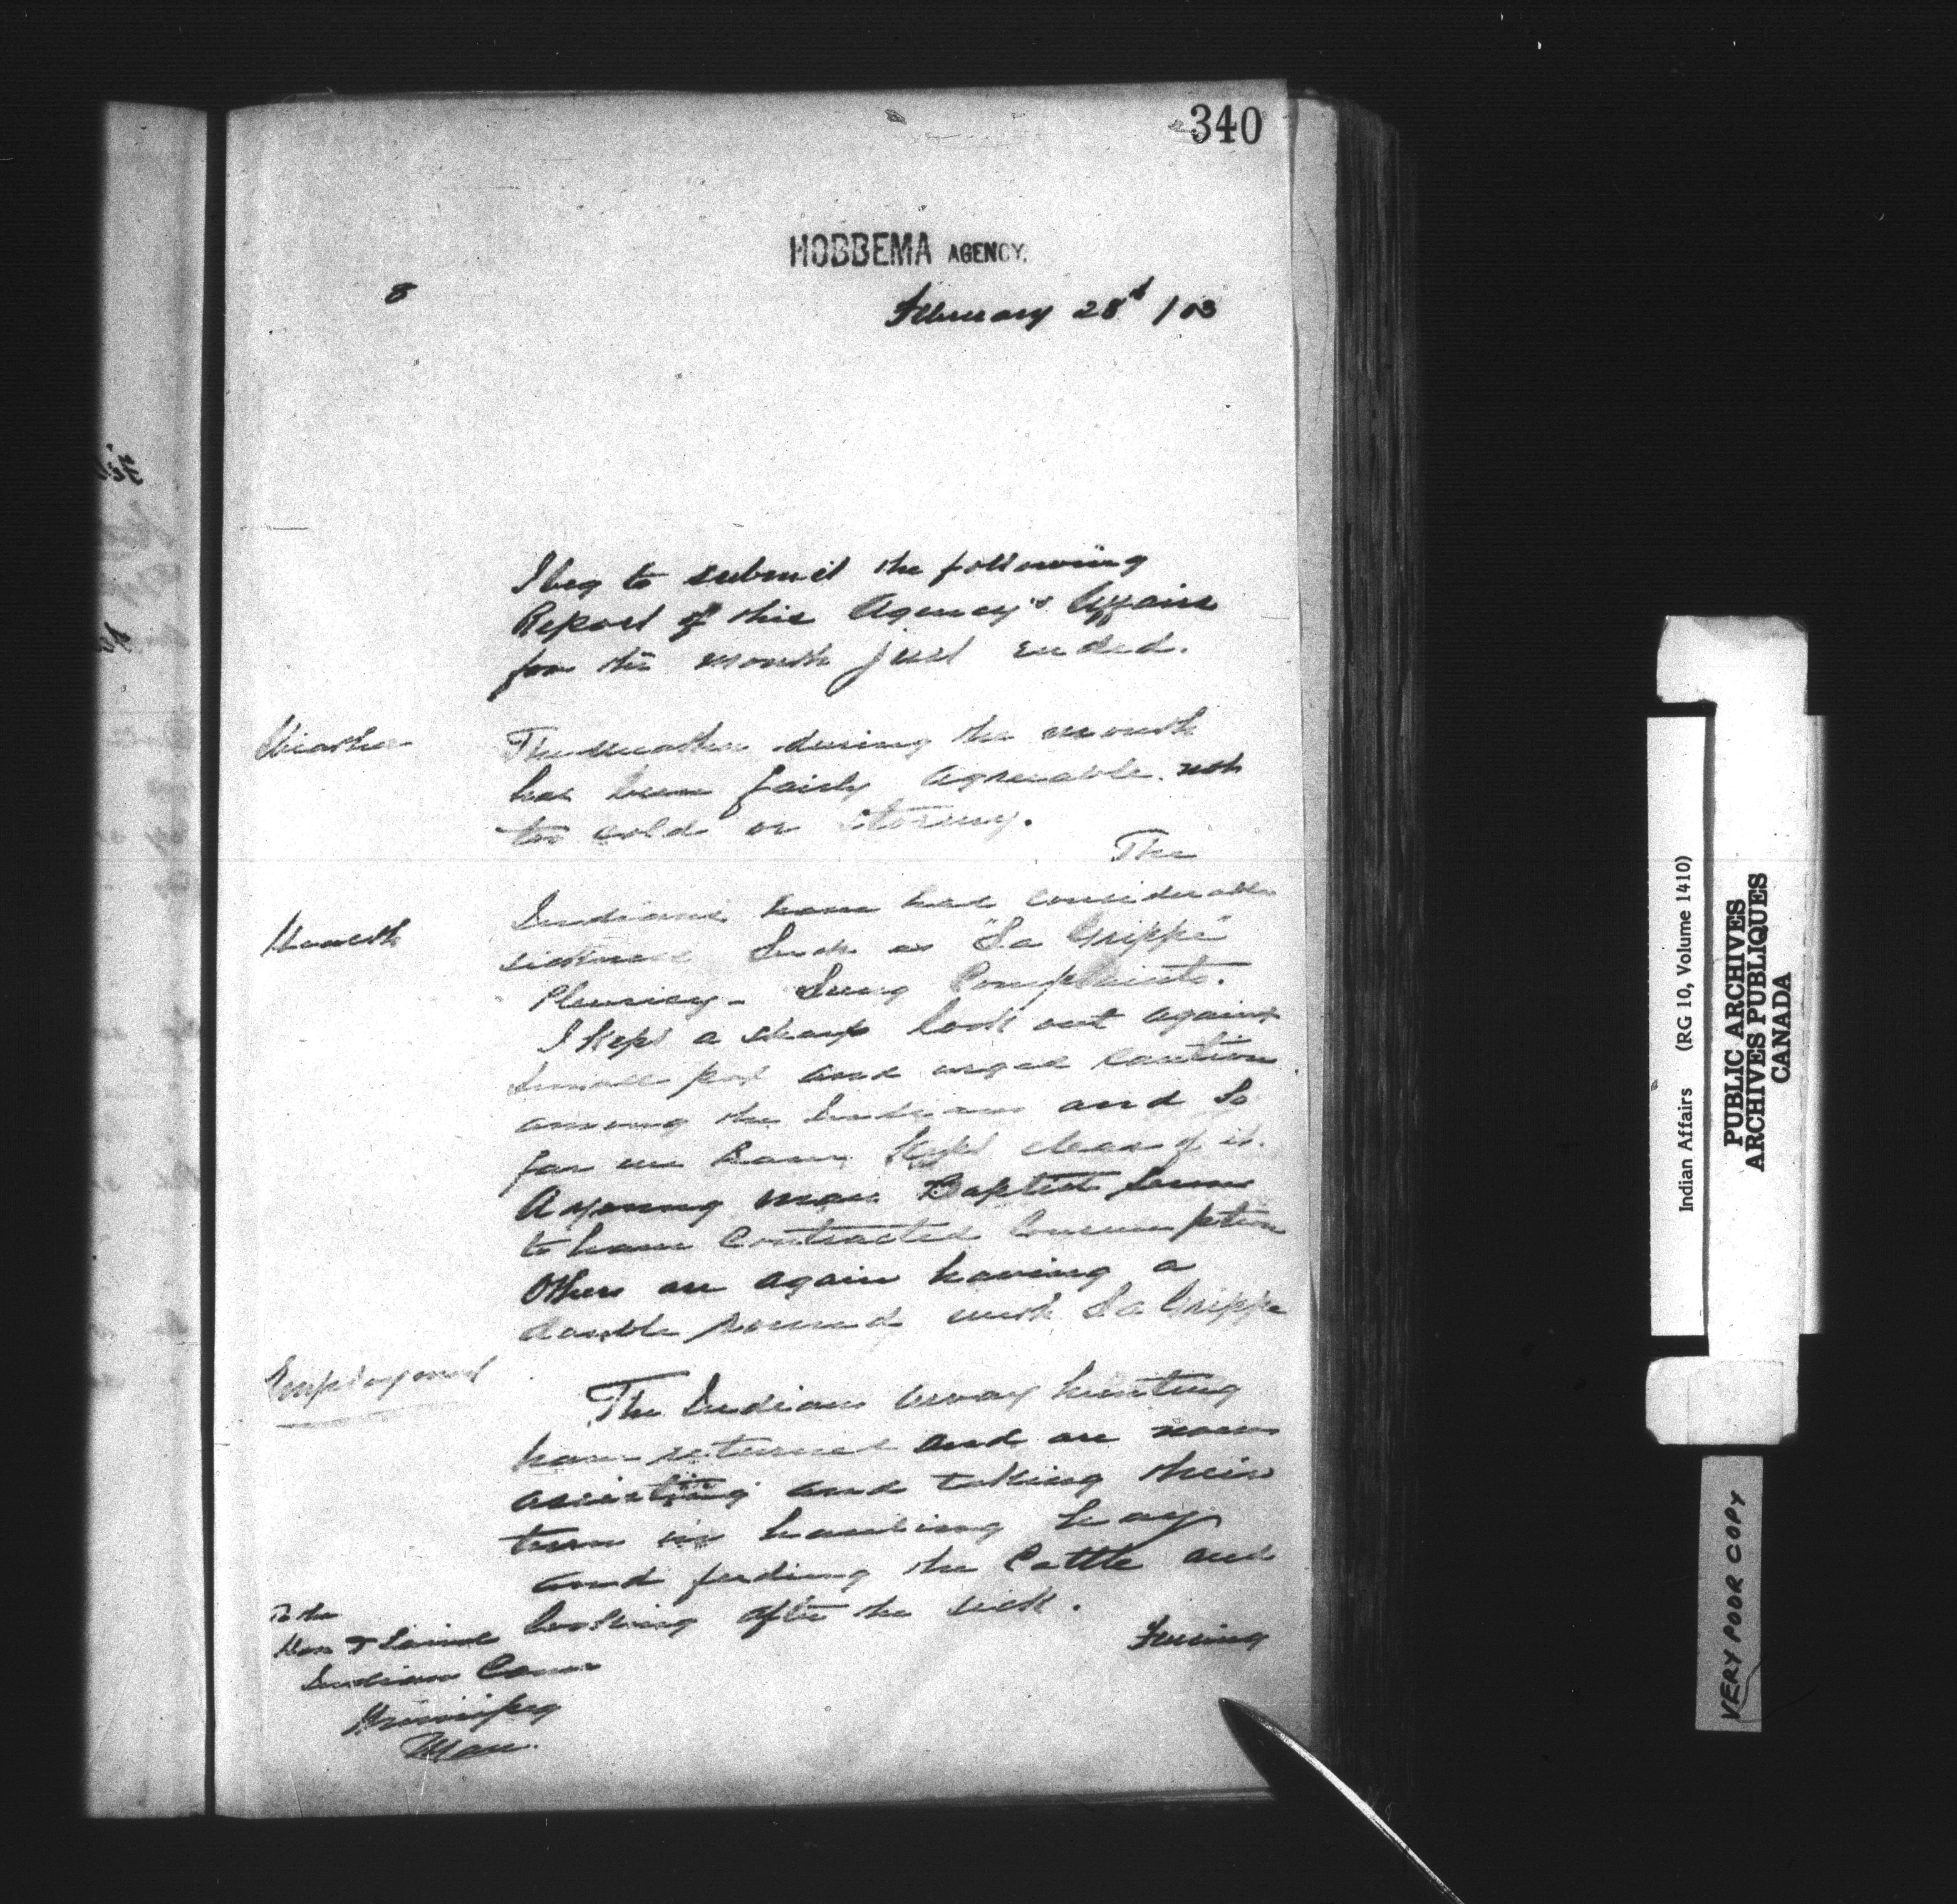 340
HOBBEMA AGENCY.
8
February 28th /03
I beg to submit the following
Report of this Agency's Affairs
for the month just ended.
Weather
The weather during the month
has been fairly agreeable not
too cold or stormy.
The
Health
Indians have had considerable
sickness Such as "La Grippe"
Pleurisy - Lung Complaints.
I kept a sharp look out against
Small pox and urged caution
among the Indians and so
far we have kept clear of it.
A young man Baptist seems
to have Contracted Consumption
Others are again having a
double round with La Grippe
Employment
The Indians away hunting
have returned and are now
assisting and taking their
turn in hauling hay
and feeding the Cattle and
looking after the sick.
Fencing
To the
Hon D Laird
Indian Comr
Winnipeg
Man.
Indian Affairs (RG 10, Volume 1410)
PUBLIC ARCHIVES
ARCHIVES PUBLIQUES
CANADA
VERY POOR COPY